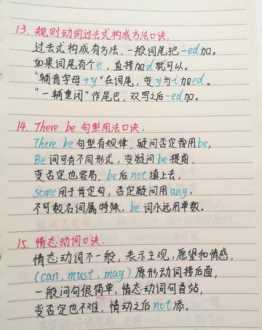 13. 规则动词过去式构成方法口诀.
过去式构成有方法, 一般词尾把-ed加。
如果词尾有个e, 直接加d就可以。
"辅音字母+y"在词尾, 变y为i加ed。
"一辅重闭"作尾巴, 双写之后-ed加。
14. There be 句型用法口诀.
There be 句型有规律, 疑问否定需用be,
Be词可有不同形式, 变疑问be提前.
变否定也容易, be后not填上去,
some用于肯定句, 否定疑问用any.
不可数名词属特殊, be词永远用单数.
15. 情态动词口诀.
情态动词不一般, 表示主观, 愿望和情感,
(can, must, may) 原形动词接后面,
一般问句很简单, 情态动词句首站,
变否定也不难, 情动之后not添。